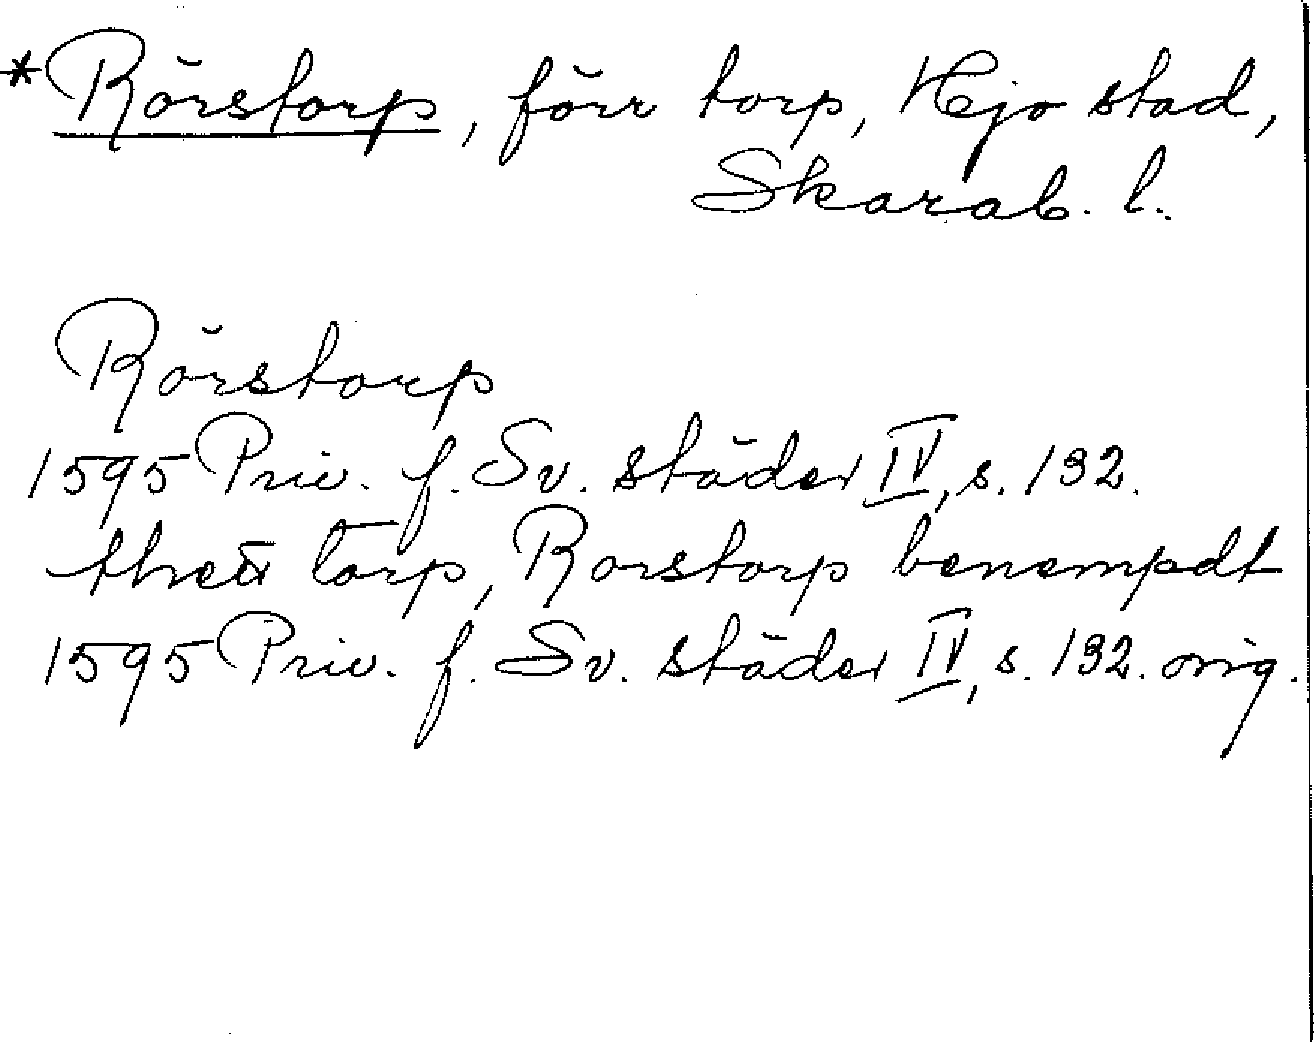 *Rörstorp, förr torp, Hjo stad,
Skarab. l.
Rörstorp
1595 Priv. f. Sv. städer IV, s. 132.
thett torp, Rorstorp benempdt
1595 Priv. f. Sv. städer IV, s. 132. orig.